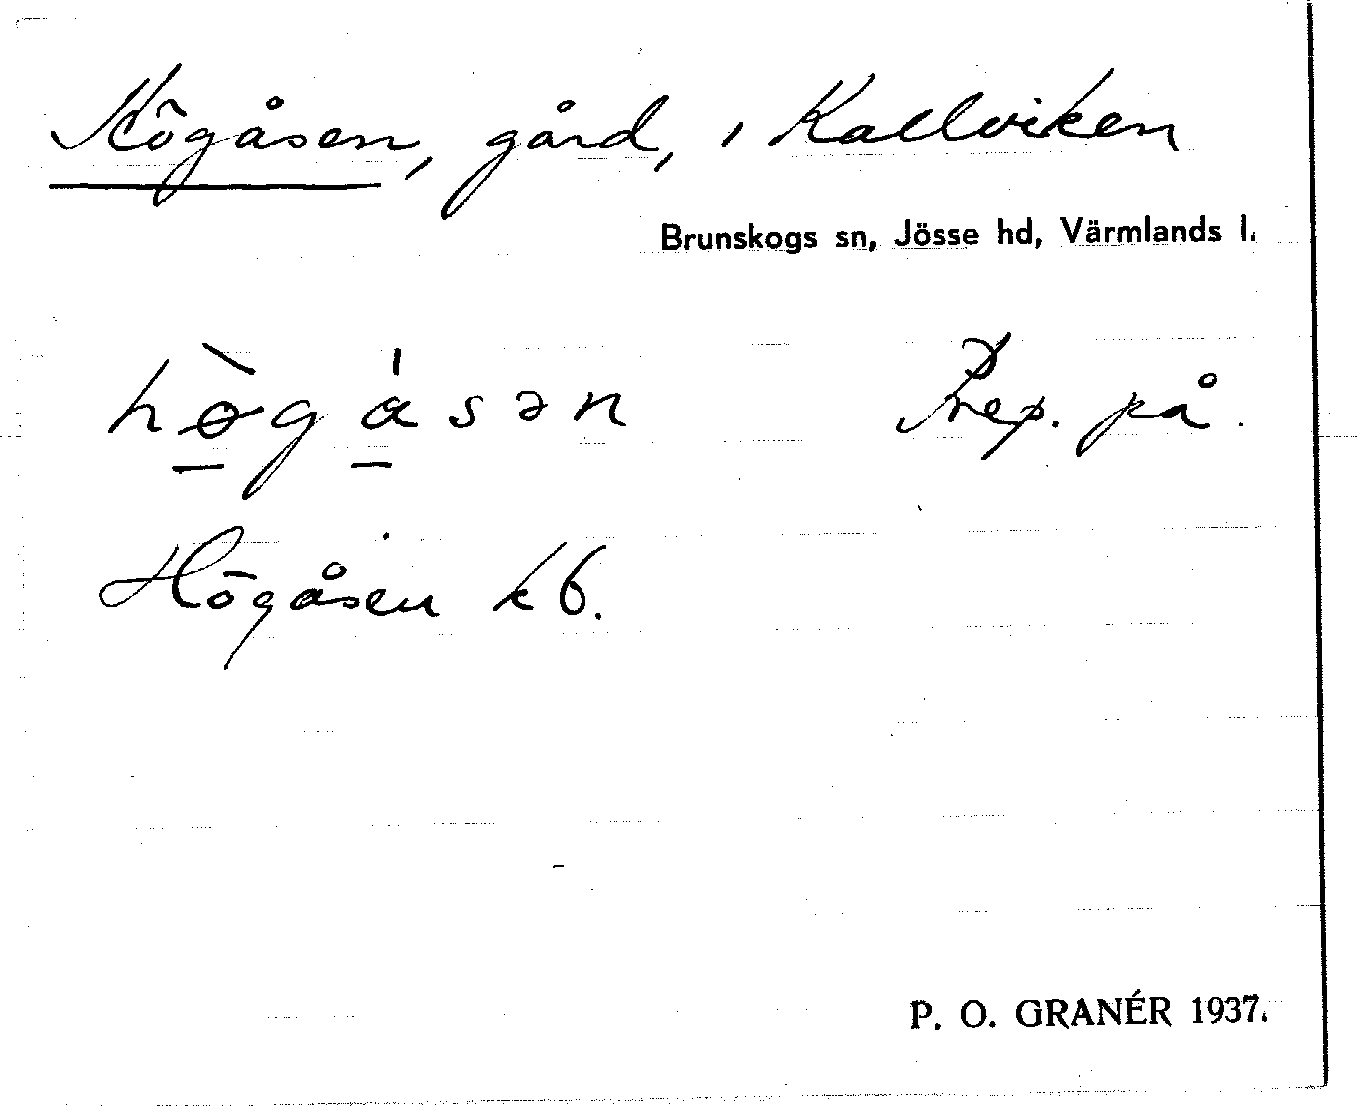 Högåsen, gård, i Kallviken
Brunskogs sn, Jösse hd, Värmlands l.
hø̀gɑ́sən Prep. på.
Högåsen kb.
P. O. GRANÉR 1937.